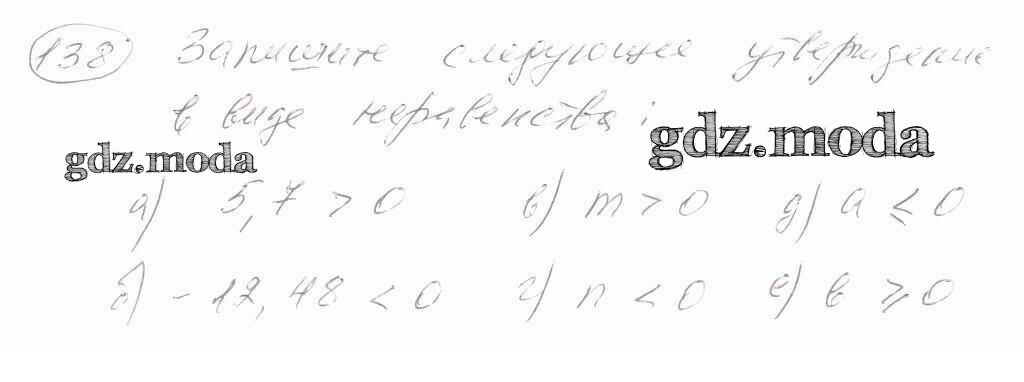 138 Запишите следующее утверждение
в виде неравенства:
gdz.moda
gdz.moda
а) 5,7 > 0 в) m > 0 д) a ⩽ 0
б) - 12,48 < 0 г) n < 0 е) в ⩾ 0